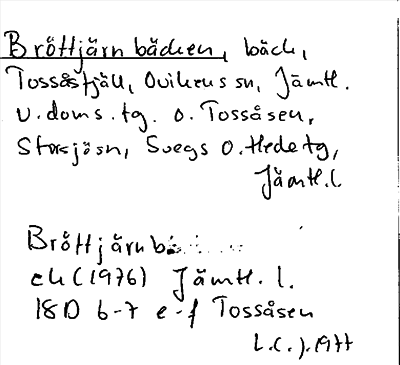 Bröttjärnbäcken, bäck,
Tossåsfjäll, Ovikens sn, Jämtl.
v. doms. tg. o. Tossåsen,
Storsjösn, Svegs o. Hede tg,
Jämtl. l.
Bröttjärnb
ek (1976) Jämtl. l.
18D 6-7 e-f Tossåsen
L.C.J. 1977